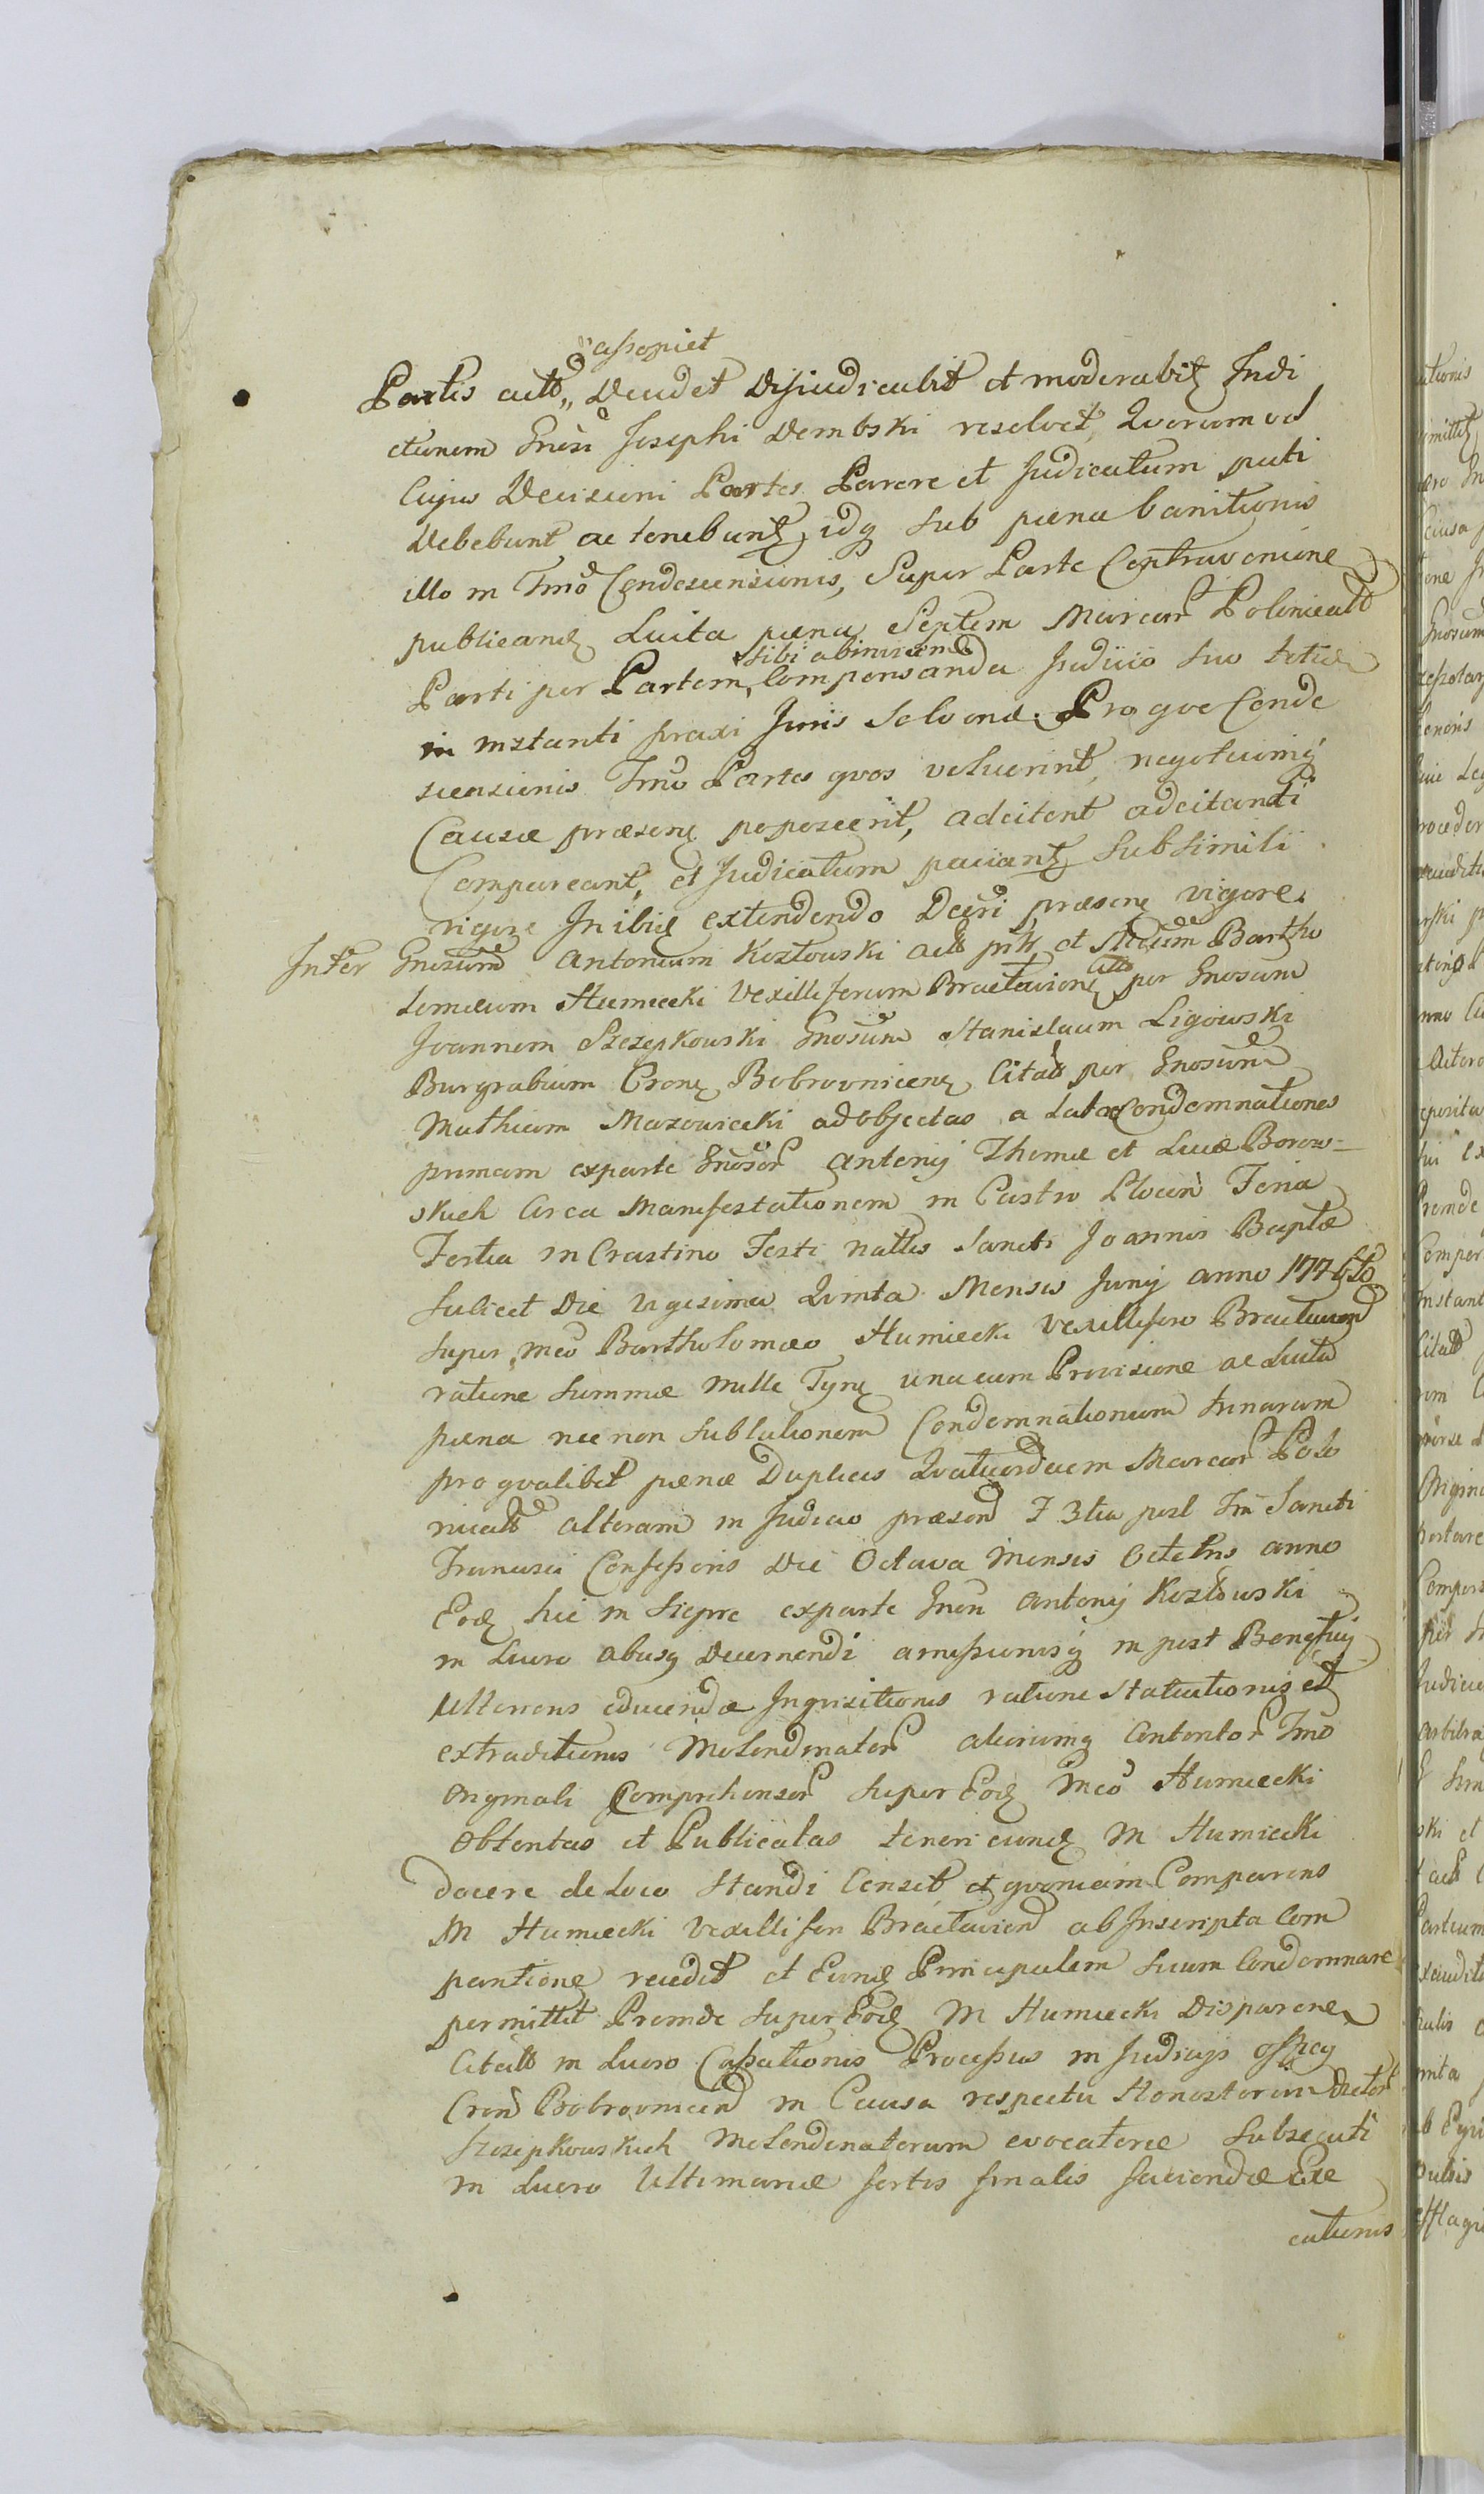 assopiet
Partis actt,, Decidet Dijudicabit et moderabit Indi
ctionem Gnosi Josephi Dembski resolvet, Quorum vel
Cujus Decisioni Partes Parere et Judicatum pati
Debebunt ac tenebunt, idq sub pæna banitionis
illo in Tmo Condescensionis, Super Parte Contravenien
publicand Luita pæna Septem Marcar Polonicalt
sibi abinvicem
Parti per Partem, Compensanda Judicio suo toties
in instanti praxi Juris Solvend. Pro quo Conde
scensionis Tmo Partes quos voluerint, negotiumq
Causæ præsen poposcerit, adcitent adcitanti
Compareant, et Judicatum paciant sub simili
rigore Inibiq extendendo Decri præsen vigore.
Inter Gnosum Antonium Kozłowski act prk et Mcum Bartho
lomæum Humiecki Vexilliferum Bractavien Citt per Gnosum
Joannem Szczepkowski Gnosum Stanislaum Ligowski
Burgrabium Cronen Bobrovnicen Citatt per Gnosum
Mathiam Mazowiecki ad objectas a Latæ Condemnationes
primam exparte Gnosor Antonij Thomæ et Lucæ Borow=
skich Circa Manifestationem in Castro Plocen Feria
Tertia in Crastino Festi natlis Sancti Joannis Baptæ
scilicet Die vigesima Quinta Mensis Junij anno 1776to
super Mco Bartholomæo Humiecki Vexillifero Bractavien
ratione summæ mille Tyn una cum Provisione ac Luita
pæna nec non sublationem Condemnationum trinarum
pro qvalibet pænæ Duplicis Quatuordecim Marcar Polo
nicalt alteram in Judicio præsen F 3tia post Fm Sancti
Francisci Confessoris Die Octava mensis Octobris anno
Eod hic in Sieprc exparte Gnosi Antonij Kozłowski
in Lucro abusq Decernendi amissionisq in post Beneficij
Ulterioris educendæ Inqvisitionis ratione Statuitionis et
extraditionis Molendinator aliorumq Contentor Tmo
Originali Comprehensor super Eod Mco Humiecki
Obtentas et Publicatas teneri eund M Humiecki
docere de Loco Standi Censet, et qvoniam Comparens
M Humiecki Vexilliferi Bractavien ab Inscripta Com
paritione recedit et Eund Principalem suum Condemnare
permittit Proinde super Eod M Humiecki Disparen
Citatt in Lucro Cassationis Processus in Judicijs Officij
Cren Bobrovnicen in Causa respectu Honestorum Dictor
Szczepkowskich Molendinatorum evocatoriæ Subsecuti
in Lucro Ultimariæ sortis finalis faciendæ Exe
cutionis